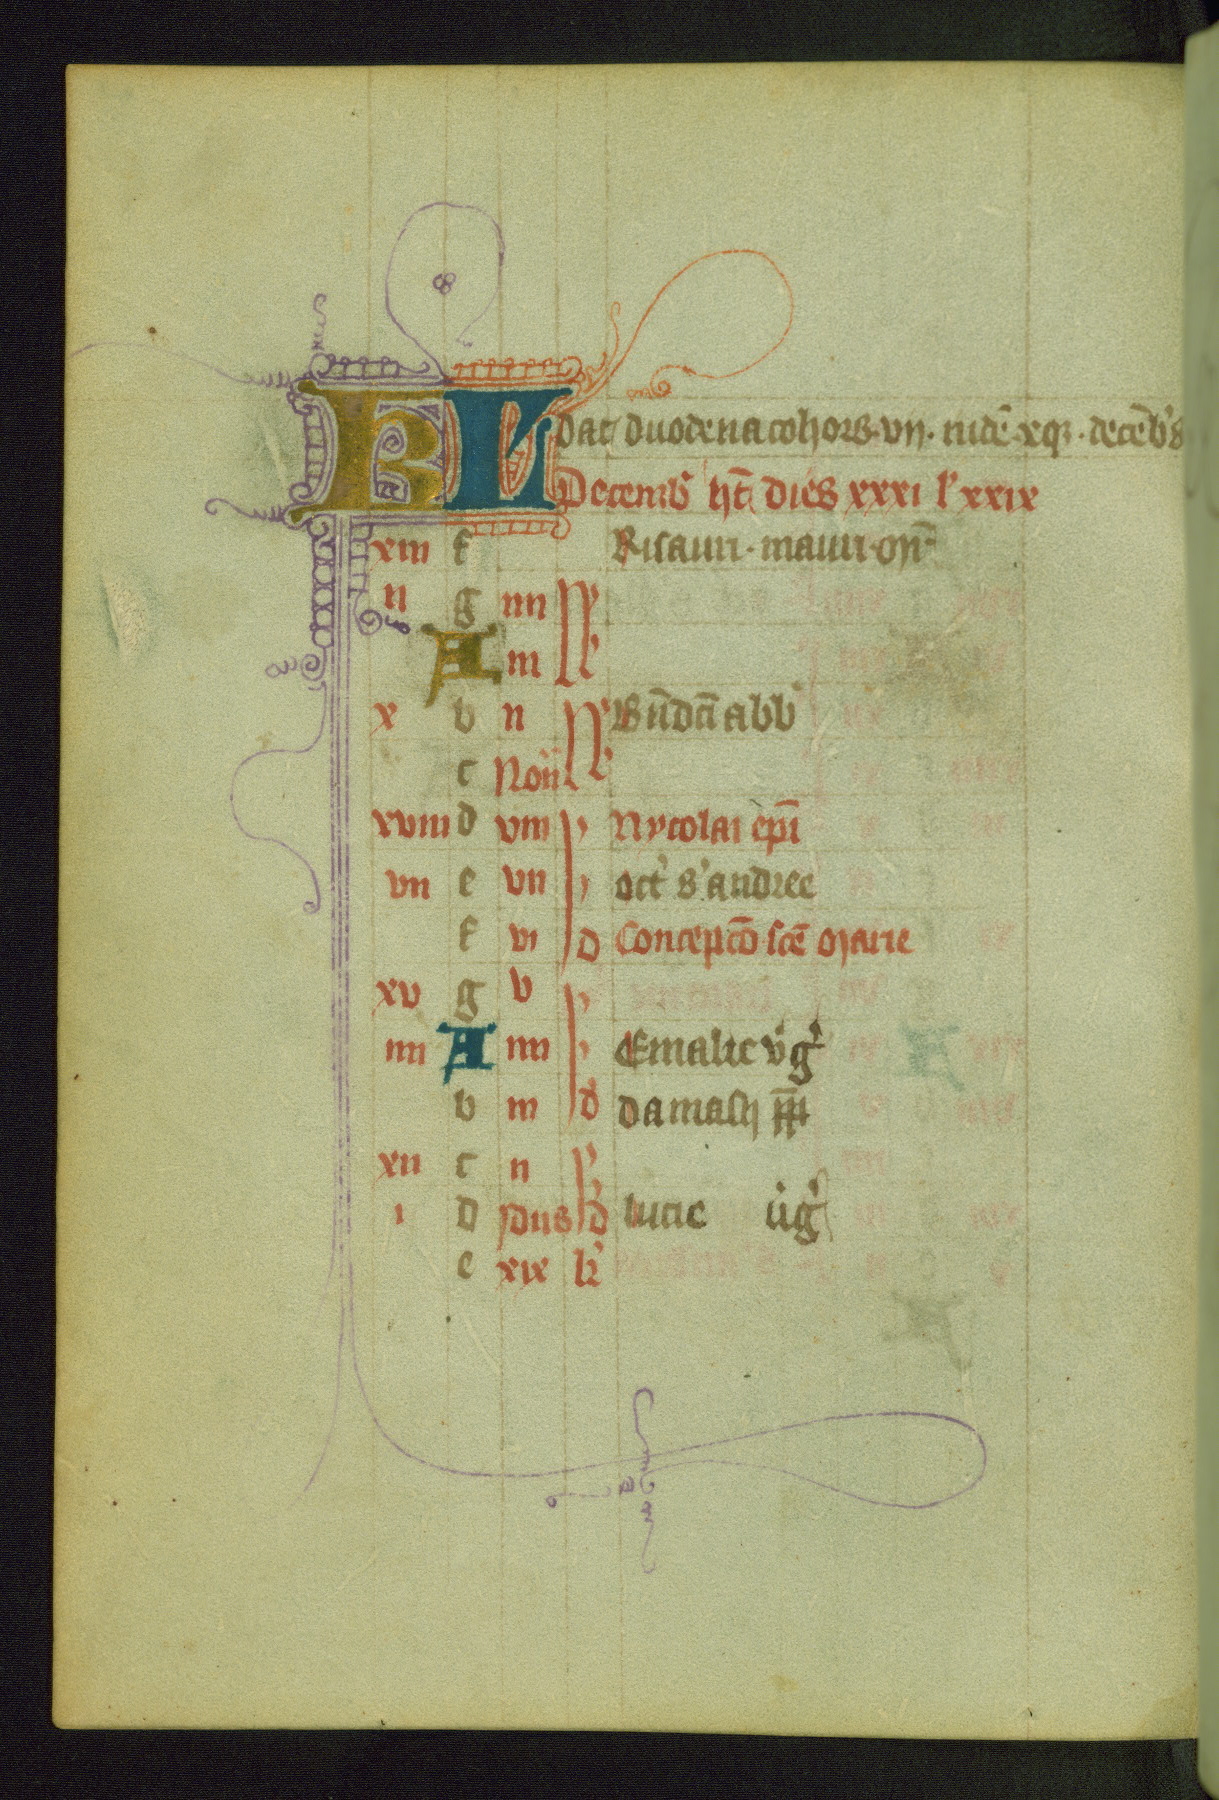 KL Dat duodena cohors. vii. inde. xq3. decēb's
Decemb' hēt dies xxxi l' xxix
xiii f
ii g iiii N'
A iii N'
x b ii N' Bn̄dc̄i abb'
c Non'
xviii d viii Nycolai ēpi
vii e vii oct' s' andree
f vi D Concepcō scē marie
xv g v
iiii A iiii Emalie v'g'
b iii D damasij pp̄
xii c ii
i d Jdus D lucie v'g'
e xix kl'